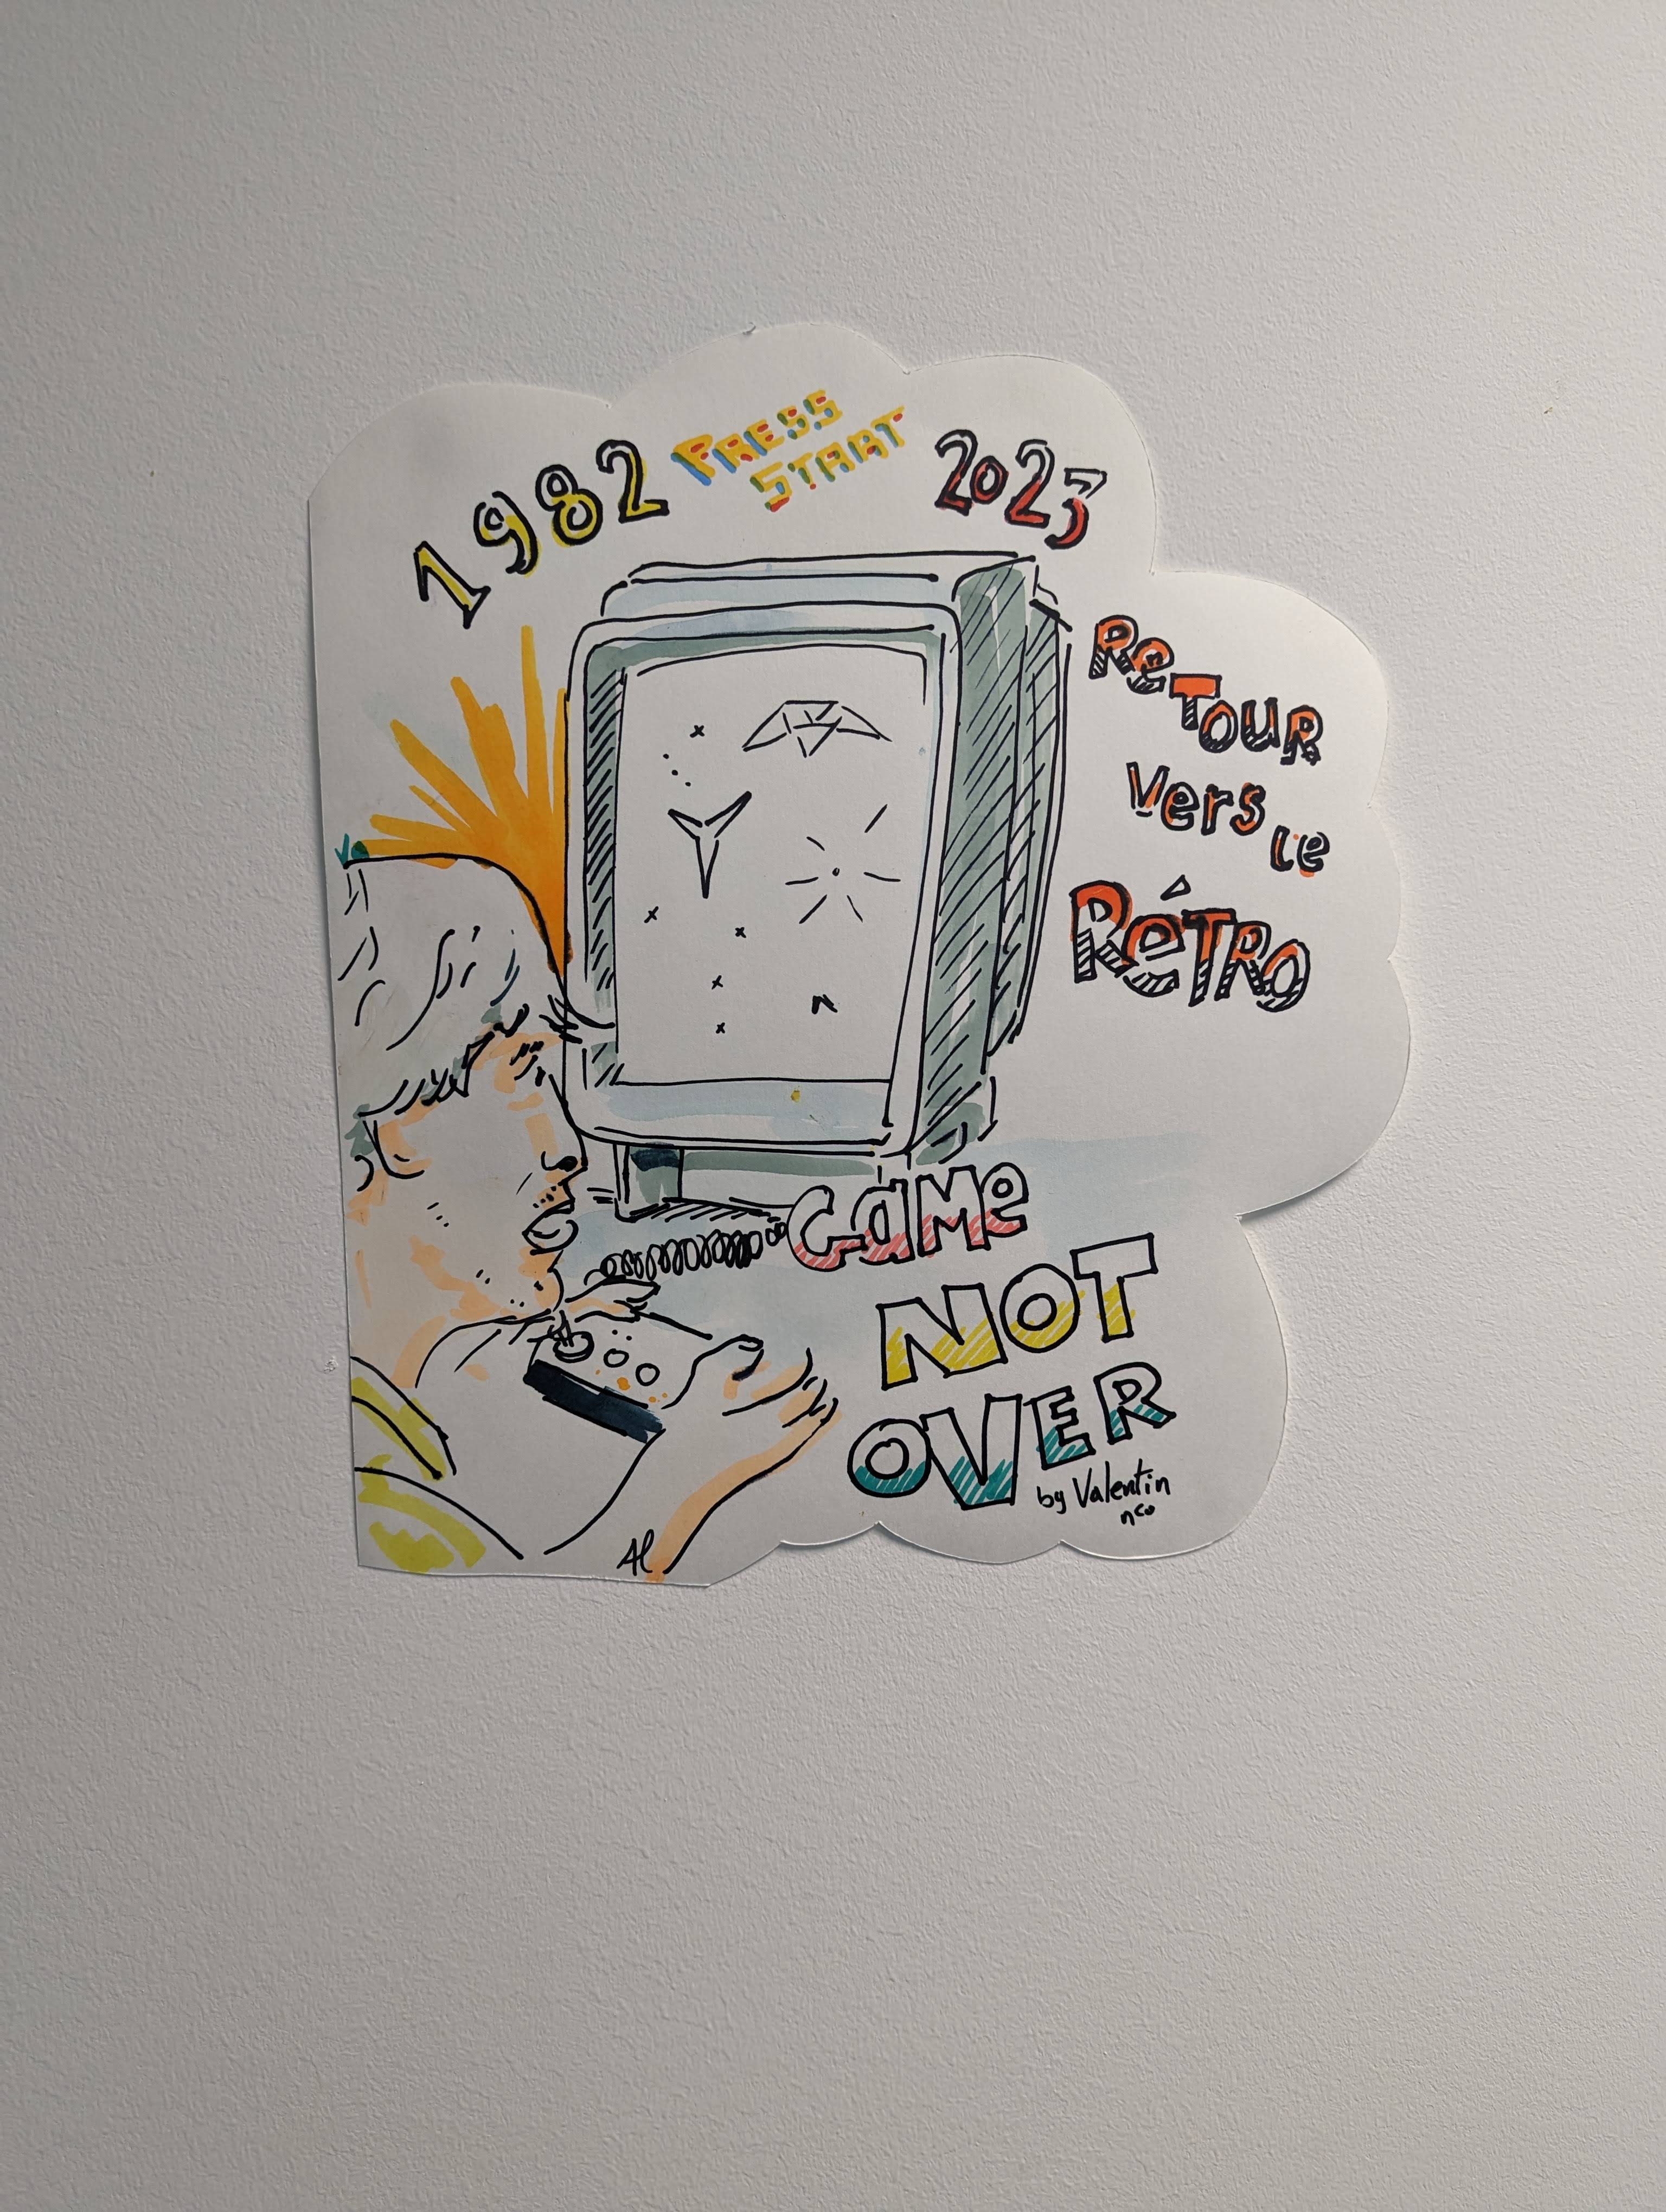 1982
PRESS
START
2023
ReTOUR
Vers
le
RéTRO
GaMe
NOT
OVER
by Valentin
nco